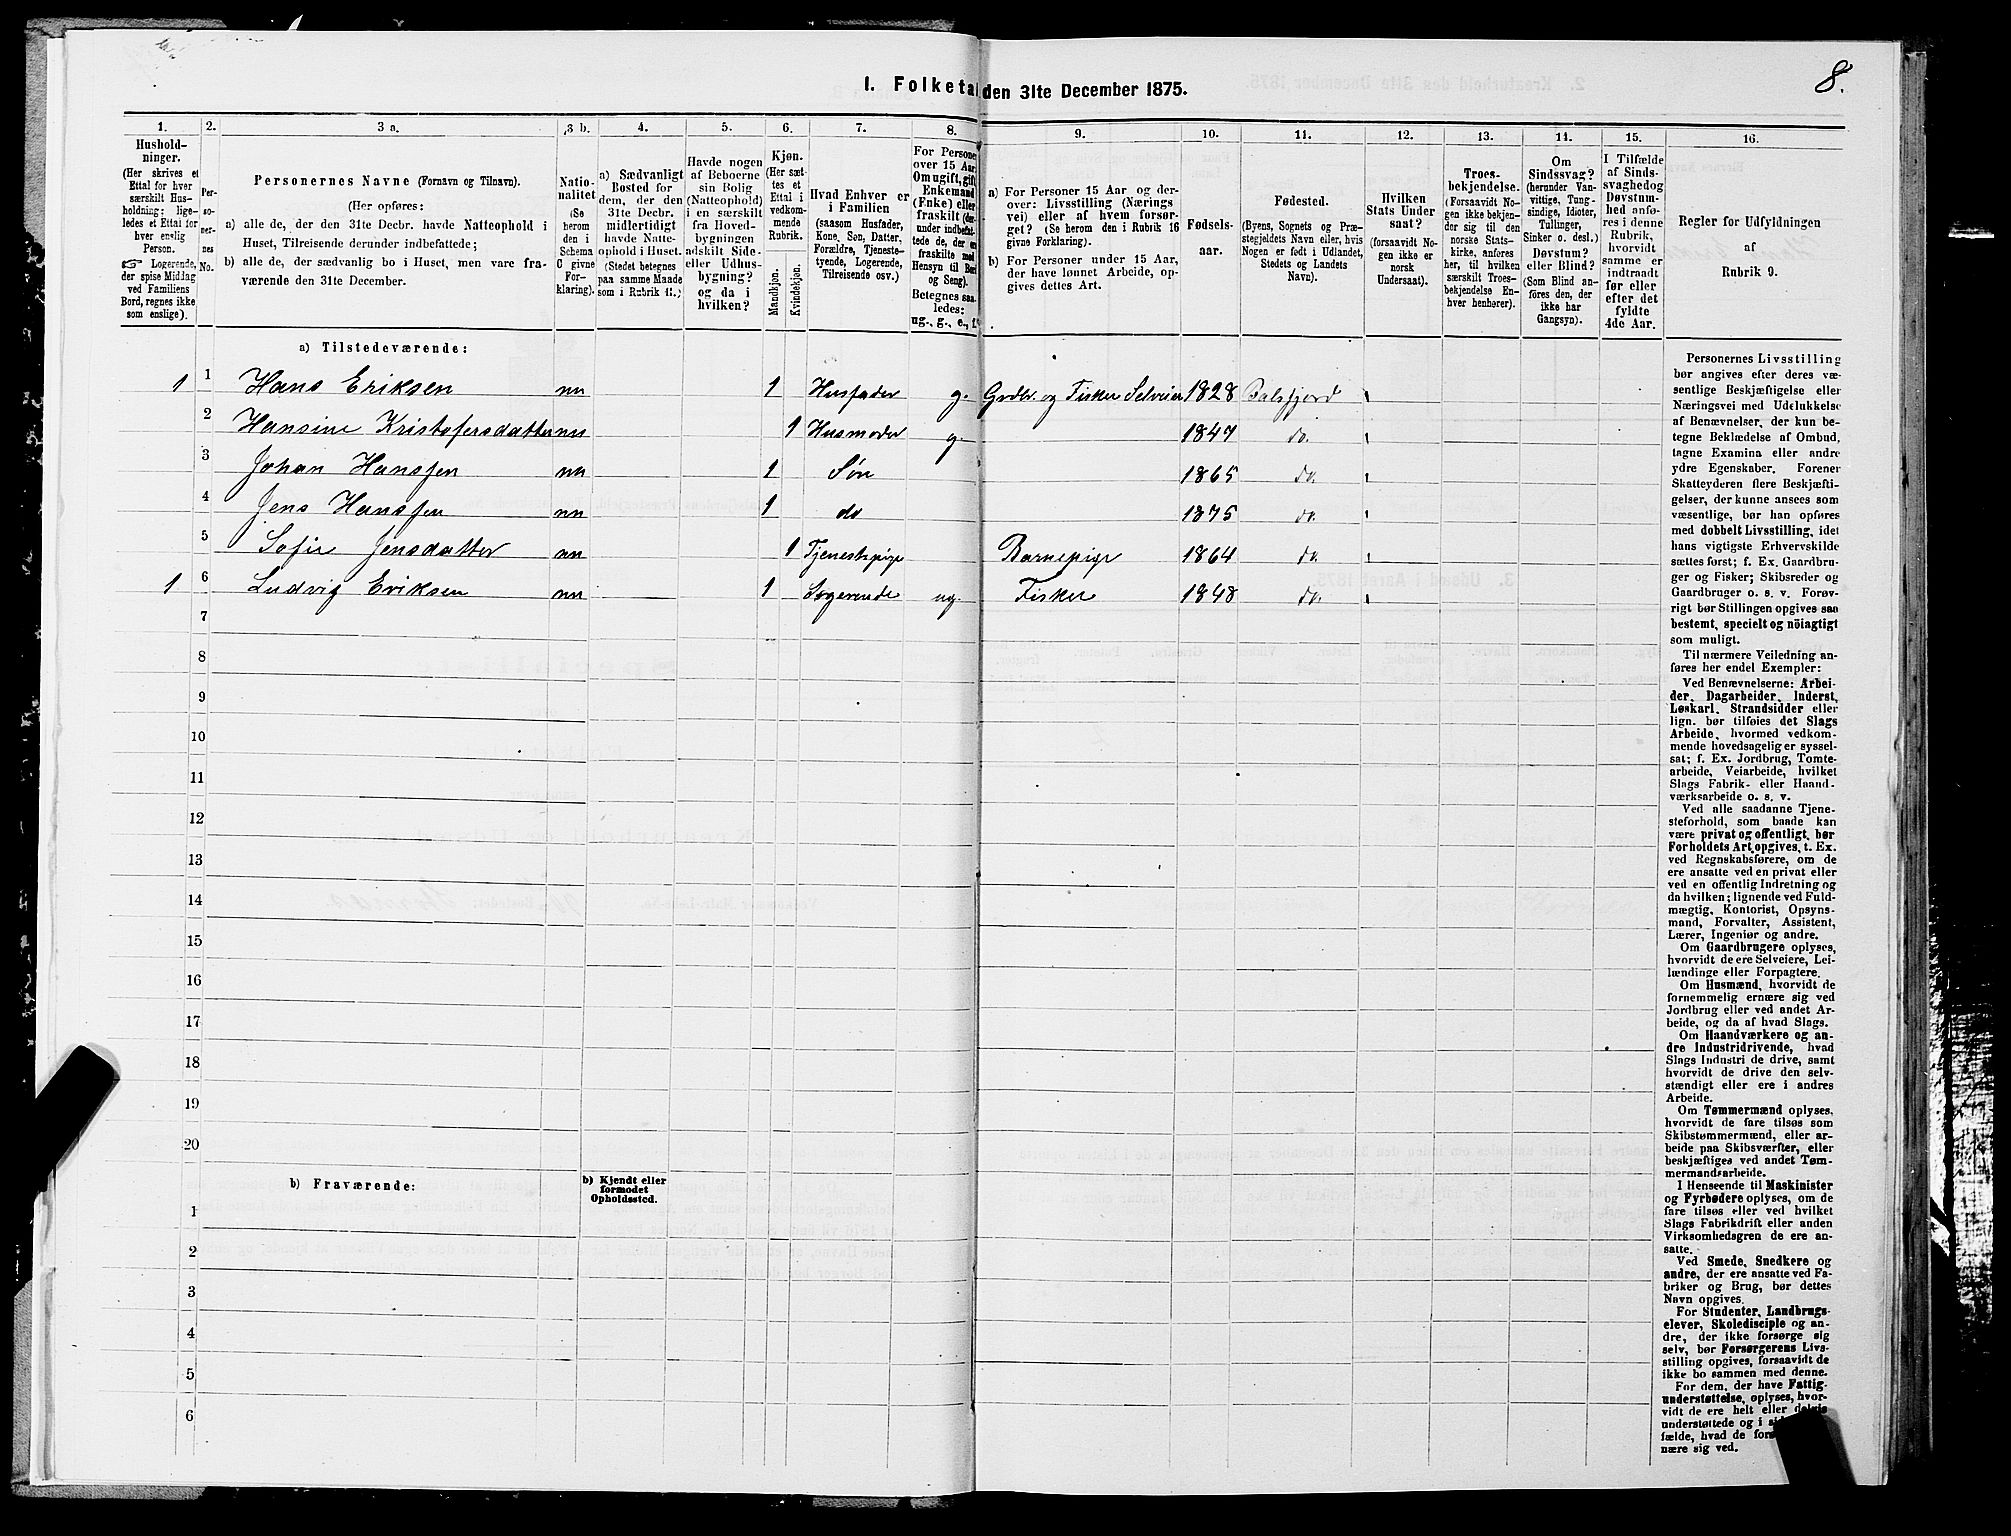 1. Folketa den 31te December 1875.
8.
1.
2.
3 a.
3 b.
4.
5.
6.
7.
8.
9.
10.
11.
12.
13.
14.
15.
16.
Hushold-
ninger.
(Her skrives et
Ettal for hver
særskilt Hus-
holdning; lige-
ledes et Ettal for
hver enslig
Person.
☞ Logerende,
der spise Middag
ved Familiens
Bord, regnes ikke
som enslige).
Per-
so-
ner-
nes
No.
Personernes Navne (Fornavn og Tilnavn).
(Her opføres:
a) alle de, der den 31te Decbr. havde Natteophold i
Huset, Tilreisende derunder indbefattede;
b) alle de, der sædvanlig bo i Huset, men vare fra-
værende den 31te December.
Natio-
nalitet
(Se
herom
den i
Schema
C givne
For-
klaring).
a) Sædvanligt
Bosted for
dem, der den
31te Decbr.
midlertidigt
havde Natte-
ophold i Huset.
(Stedet betegnes
paa samme Maade
som i Rubrik 11.;
Havde nogen
af Beboerne
sin Bolig
(Natteophold)
i en særskilt
fra Hoved-
bygningen
adskilt Side-
eller Udhus-
bygning?
og da i
hvilken?
Kjøn.
(Her sæt-
tes et
Ettal i
vedkom-
mende
Rubrik.
Mandkjøn.
Kvindekjøn.
Hvad Enhver er
i Familien
(saasom Husfader,
Kone, Søn, Datter,
Forældre, Tjeneste-
tyende, Logerende,
Tilreisende osv.)
For Persone
over 15 Aar
Om ugift, gift,
Enkemand
(Enke) eller
fraskilt (der-
under indbefat-
tede de, der er
fraskilte med
Hensyn til Bord
og Seng).
Betegnes saa-
ledes:
ug., g., e., f.
a) For Personer 15 Aar og der-
over: Livsstilling (Nærings
vei) eller af hvem forsør-
get? (Se herom den i Rubrik 16
givne Forklaring).
b) For Personer under 15 Aar,
der have lønnet Arbeide, op-
gives dettes Art.
Fødsels-
aar.
Fødested.
(Byens, Sognets og Præ-
stegjeldets Navn eller, hvis
Nogen er født i Udlandet,
Stedets og Landets
Navn).
Hvilken
Stats Under
saat?
(forsaavidt No-
gen ikke er
norsk
Undersaat).
Troes-
bekjendelse.
(Forsaavidt No-
gen ikke bekjen-
der sig til den
norske Stats-
kirke, anføres
her, til hvilken
særskilt Troes-
bekjendelse En-
hver henhører).
Om
Sindssvag?
(herunder Van-
vittige, Tung-
sindige, Idioter,
Tullinger,
Sinker o. desl.)
Døvstum?
eller Blind?
(Som Blind an-
føres den, der
ikke har
Gangsyn).
I Tilfælde
af Sinds-
svaghedog
Døvstum-
hed anfø-
res i denne
Rubrik,
hvorvidt
samme er
indtraadt
før eller
efter det
fyldte
4de Aar.
Regler for Udfyldningen
af
Rubrik 9.
a) Tilstedeværende:
1 1 Hans Eriksen nn 1 Husfader g. Grdbr. og Fisker Selveier 1828 Balsfjord
2 Hansine Kristofersdatter nn 1 Husmoder g. 1847 do.
3 Johan Hanssen nn 1 Søn 1865 do.
4 Jens Hanssen nn 1 do 1875 do.
5 Sofie Jensdatter nn 1 Tjenestepige Barnepige 1864 do.
1 6 Ludvig Eriksen nn 1 Logerende ug. Fisker 1848 do.
7
8
9
10
11
12
13
14
15
16
17
18
19
20
b) Fraværende:
b) Kjendt eller
formodet
Opholdssted.
1
2
3
4
5
6
Personernes Livsstilling
bør angives efter deres væ-
sentlige Beskjæftigelse eller
Næringsvei med Udelukkelse
af Benævnelser, der kun be-
tegne Beklædelse af Ombud,
tagne Examina eller andre
ydre Egenskaber. Forener
Skatteyderen flere Beskjæfti-
gelser, der kunne ansees som
væsentlige, bør han opføres
med dobbelt Livsstilling, idet
hans vigtigste Erhvervskilde
sættes først; f. Ex. Gaardbru-
ger og Fisker; Skibsreder og
Gaardbruger o. s. v. Forøv-
rigt bør Stillingen opgives saa
bestemt, specielt og nöiagtigt
som muligt.
Til nærmere Veiledning an-
føres her endel Exempler:
Ved Benævnelserne: Arbei-
der, Dagarbeider, Inderst,
Løskarl, Strandsidder eller
lign. bør tilføies det Slags
Arbeide, hvormed vedkom-
mende hovedsagelig er syssel-
sat; f. Ex. Jordbrug, Tomte-
arbeide, Veiarbeide, hvilket
Slags Fabrik- eller Haand-
værksarbeide o. s. v.
Ved alle saadanne Tjene-
steforhold, som baade kan
være privat og offentligt, bør
Forholdets Art opgives, t. Ex.
ved Regnskabsførere, om de
ere ansatte ved en privat eller
ved en offentlig Indretning og
da hvilken; lignende ved Fuld-
mægtig, Kontorist, Opsyns-
mand, Forvalter, Assistent,
Lærer, Ingeniør og andre.
Om Gaardbrugere oplyses,
hvorvidt de ere Selveiere, Lei-
lændinge eller Forpagtere.
Om Husmænd, hvorvidt de
fornemmelig ernære sig ved
Jordbrug eller ved andet Ar-
beide, og da af hvad Slags.
Om Haandværkere og an-
dre Industridrivende, hvad
Slags Industri de drive, samt
hvorvidt de drive den selv-
stændigt eller ere i andres
Arbeide.
Om Tømmermænd oplyses,
hvorvidt de fare tilsøs som
Skibstømmermænd, eller ar-
beide paa Skibsværfter, eller
beskjæftiges ved andet Tøm-
mermandsarbeide.
I Henseende til Maskinister
og Fyrbødere oplyses, om de
fare tilsøs eller ved hvilket
Slags Fabrikdrift eller anden
Virksomhedsgren de ere an-
satte.
Ved Smede, Snedkere og
andre, der ere ansatte ved Fa-
briker og Brug, bør dettes
Navn opgives.
For Studenter, Landbrugs-
elever, Skoledisciple og an-
dre, der ikke forsørge sig
selv, bør Forsørgerens Livs-
stilling opgives, forsaavidt de
ikke bo sammen med denne.
For dem, der have Fattig-
understøttelse, oplyses, hvor-
vidt de ere helt eller delvis
understøttede og i si
fælde, hvad de for
nære sig ved.